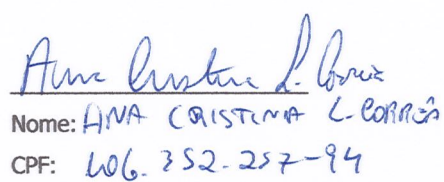 Ana Cristina L. Correia
Nome: ANA CRISTINA L. CORREIA
CPF: 406.352.257-94